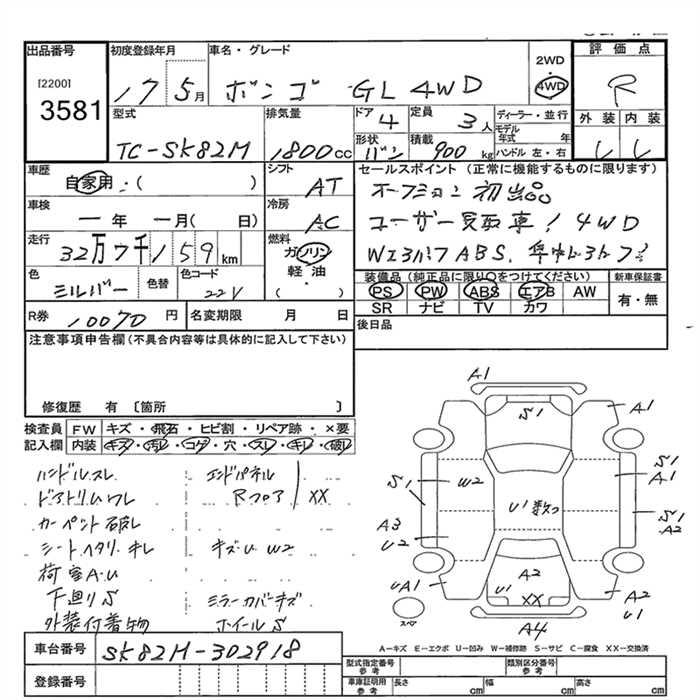 出品番号
[2200]
3581
初度登録年月
17 5月
車名・グレード
ボンゴ GL 4WD
2WD
4WD
評価点
R
外装 内装
型式
TC-SK82M
排気量
1800cc
ドア
4
定員
3人
形状
バン
積載
900kg
ディーラー・並行
モデル年式 年
ハンドル 左・右
車歴
自家用:( )
シフト
AT
車検
一年 一月( 日)
冷房
AC
走行
32万7千159km
燃料
ガソリン
軽・油
( )
色
シルバー
色替
色コード
22V
R券
10070円
名変期限 月 日
セールスポイント(正常に機能するものに限ります)
初出品
ユーザー買取車! 4WD
ABS.
装備品(純正品に限り○をつけてください)
PS PW ABS エアB AW
SR ナビ TV カワ
新車保証書
有・無
後日品
注意事項申告欄(不具合内容等は具体的に記入して下さい)
修復歴 有 〔箇所 〕
検査員記入欄
FW キズ・飛石・ヒビ割・リペア跡・×要
内装 キズ・汚レ・コゲ・穴・スレ・キレ・破レ
ハンドルスレ
ドアトリムワレ
カーペント破レ
シートヘタリ・キレ
荷室A.U
下廻りS
外装付着物
エンドパネル
Rフロア XX
キズ.U W2
ミラーカバーキズ
ホイールS
A1
S1
A1
S1
W2
U1
S1
A1
A3
U2
S1
A2
UA1
A2
U1
XX
A2
U1
A4
スペア
A−キズ E−エクボ U−凹み W−補修跡 S−サビ C−腐食 XX−交換済
車台番号
SK82M-302918
登録番号
型式指定番号
参考
類別区分番号
参考
車庫証明用
参考
長さ cm 幅 cm 高さ cm